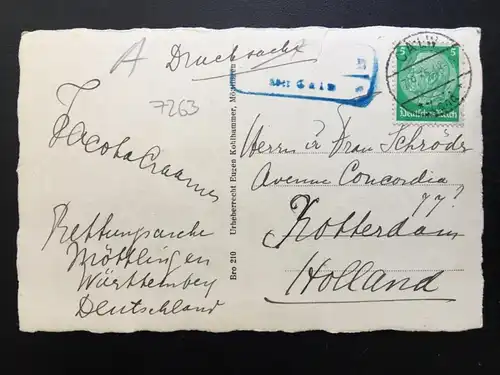 A Drucksache
7263
Rettungsarche
Möttlingen
Württemberg
Deutschland
Bro 210 Urheberrecht Eugen Kohlhammer, Möttlingen
Calw
CALW
5 5
Deutsches Reich
Herrn & Frau Schroder
Avenue Concordia
77?
Rotterdam
Holland